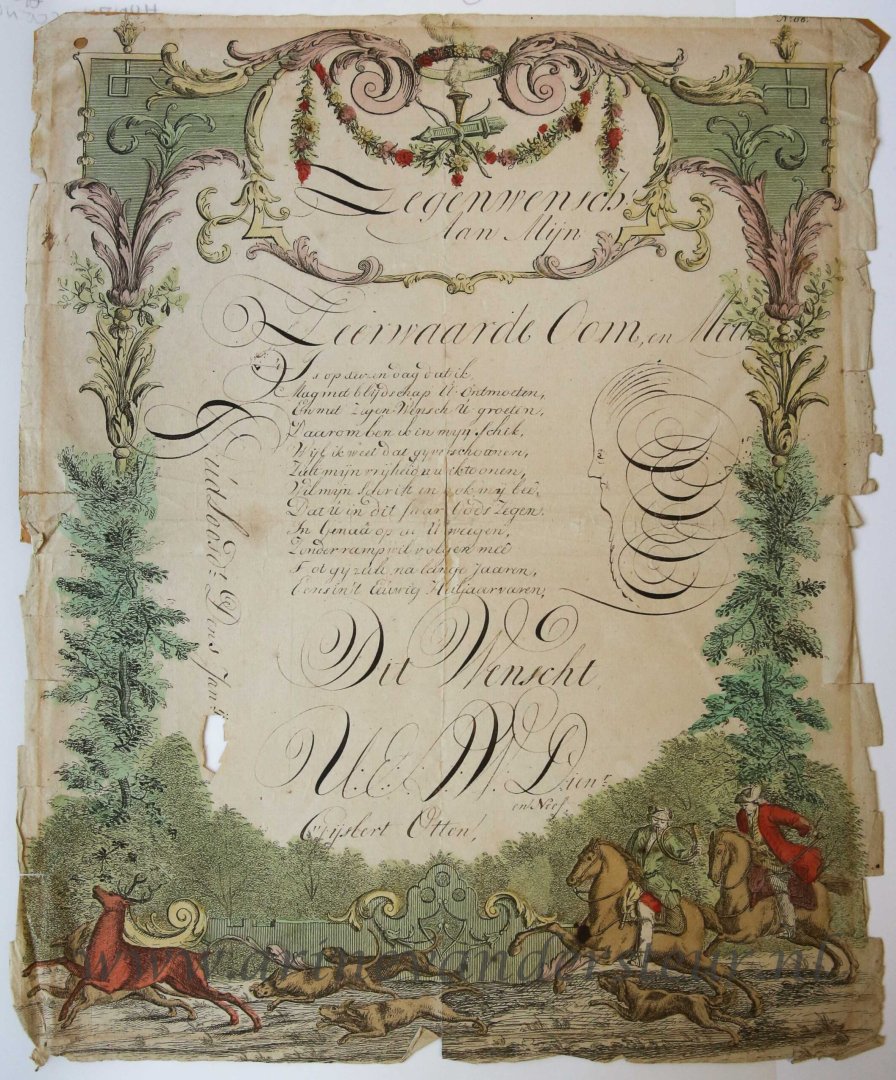 No: 66.
Zegenwensch.
Aan Mijn
Zeerwaarde Oom, en
Is op deezen dag dat ik,
Mag met blijdschap U ontmoeten,
En met Zegen Wensch U groeten,
Daarom ben ik in mijn Schik,
Wijl ik weet dat gy verschoonen,
Zult mijn vrijheid nu
Wil mijn Schrift en ook mij beê,
Dat U in dit Jaar Gods Zegen
In Genaê op al U weegen,
Zonder ramp wil volgen meê
Tot gy zult na lange Jaaren,
Eens in't Eeuwig Heil Jaar vaaren,
Dit Wenscht,
U: E: W: Dien.r
en Neef.
Gijsbert Otten,
Den 1 Jan.
www.arinevandersteur.nl